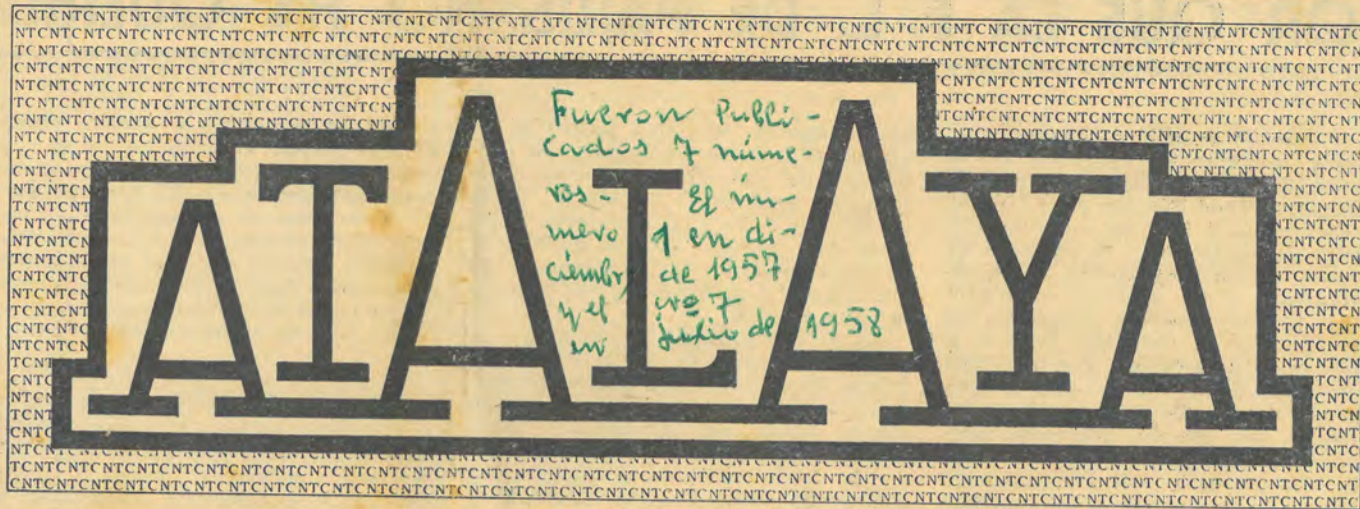 CNTCNTCNTCNTCNTCNTCNTCNTCNTCNTCNTCNTCNTCNTCNTCNTCNTCNTCNTCNTCNTCNTCNTCNTCNTCNTCNTCNTCNTC
ATALAYA
Fueron Publi-
cados 7 núme-
ros - El nú-
mero 1 en di-
ciembre de 1957
y el nº 7
en julio de 1958